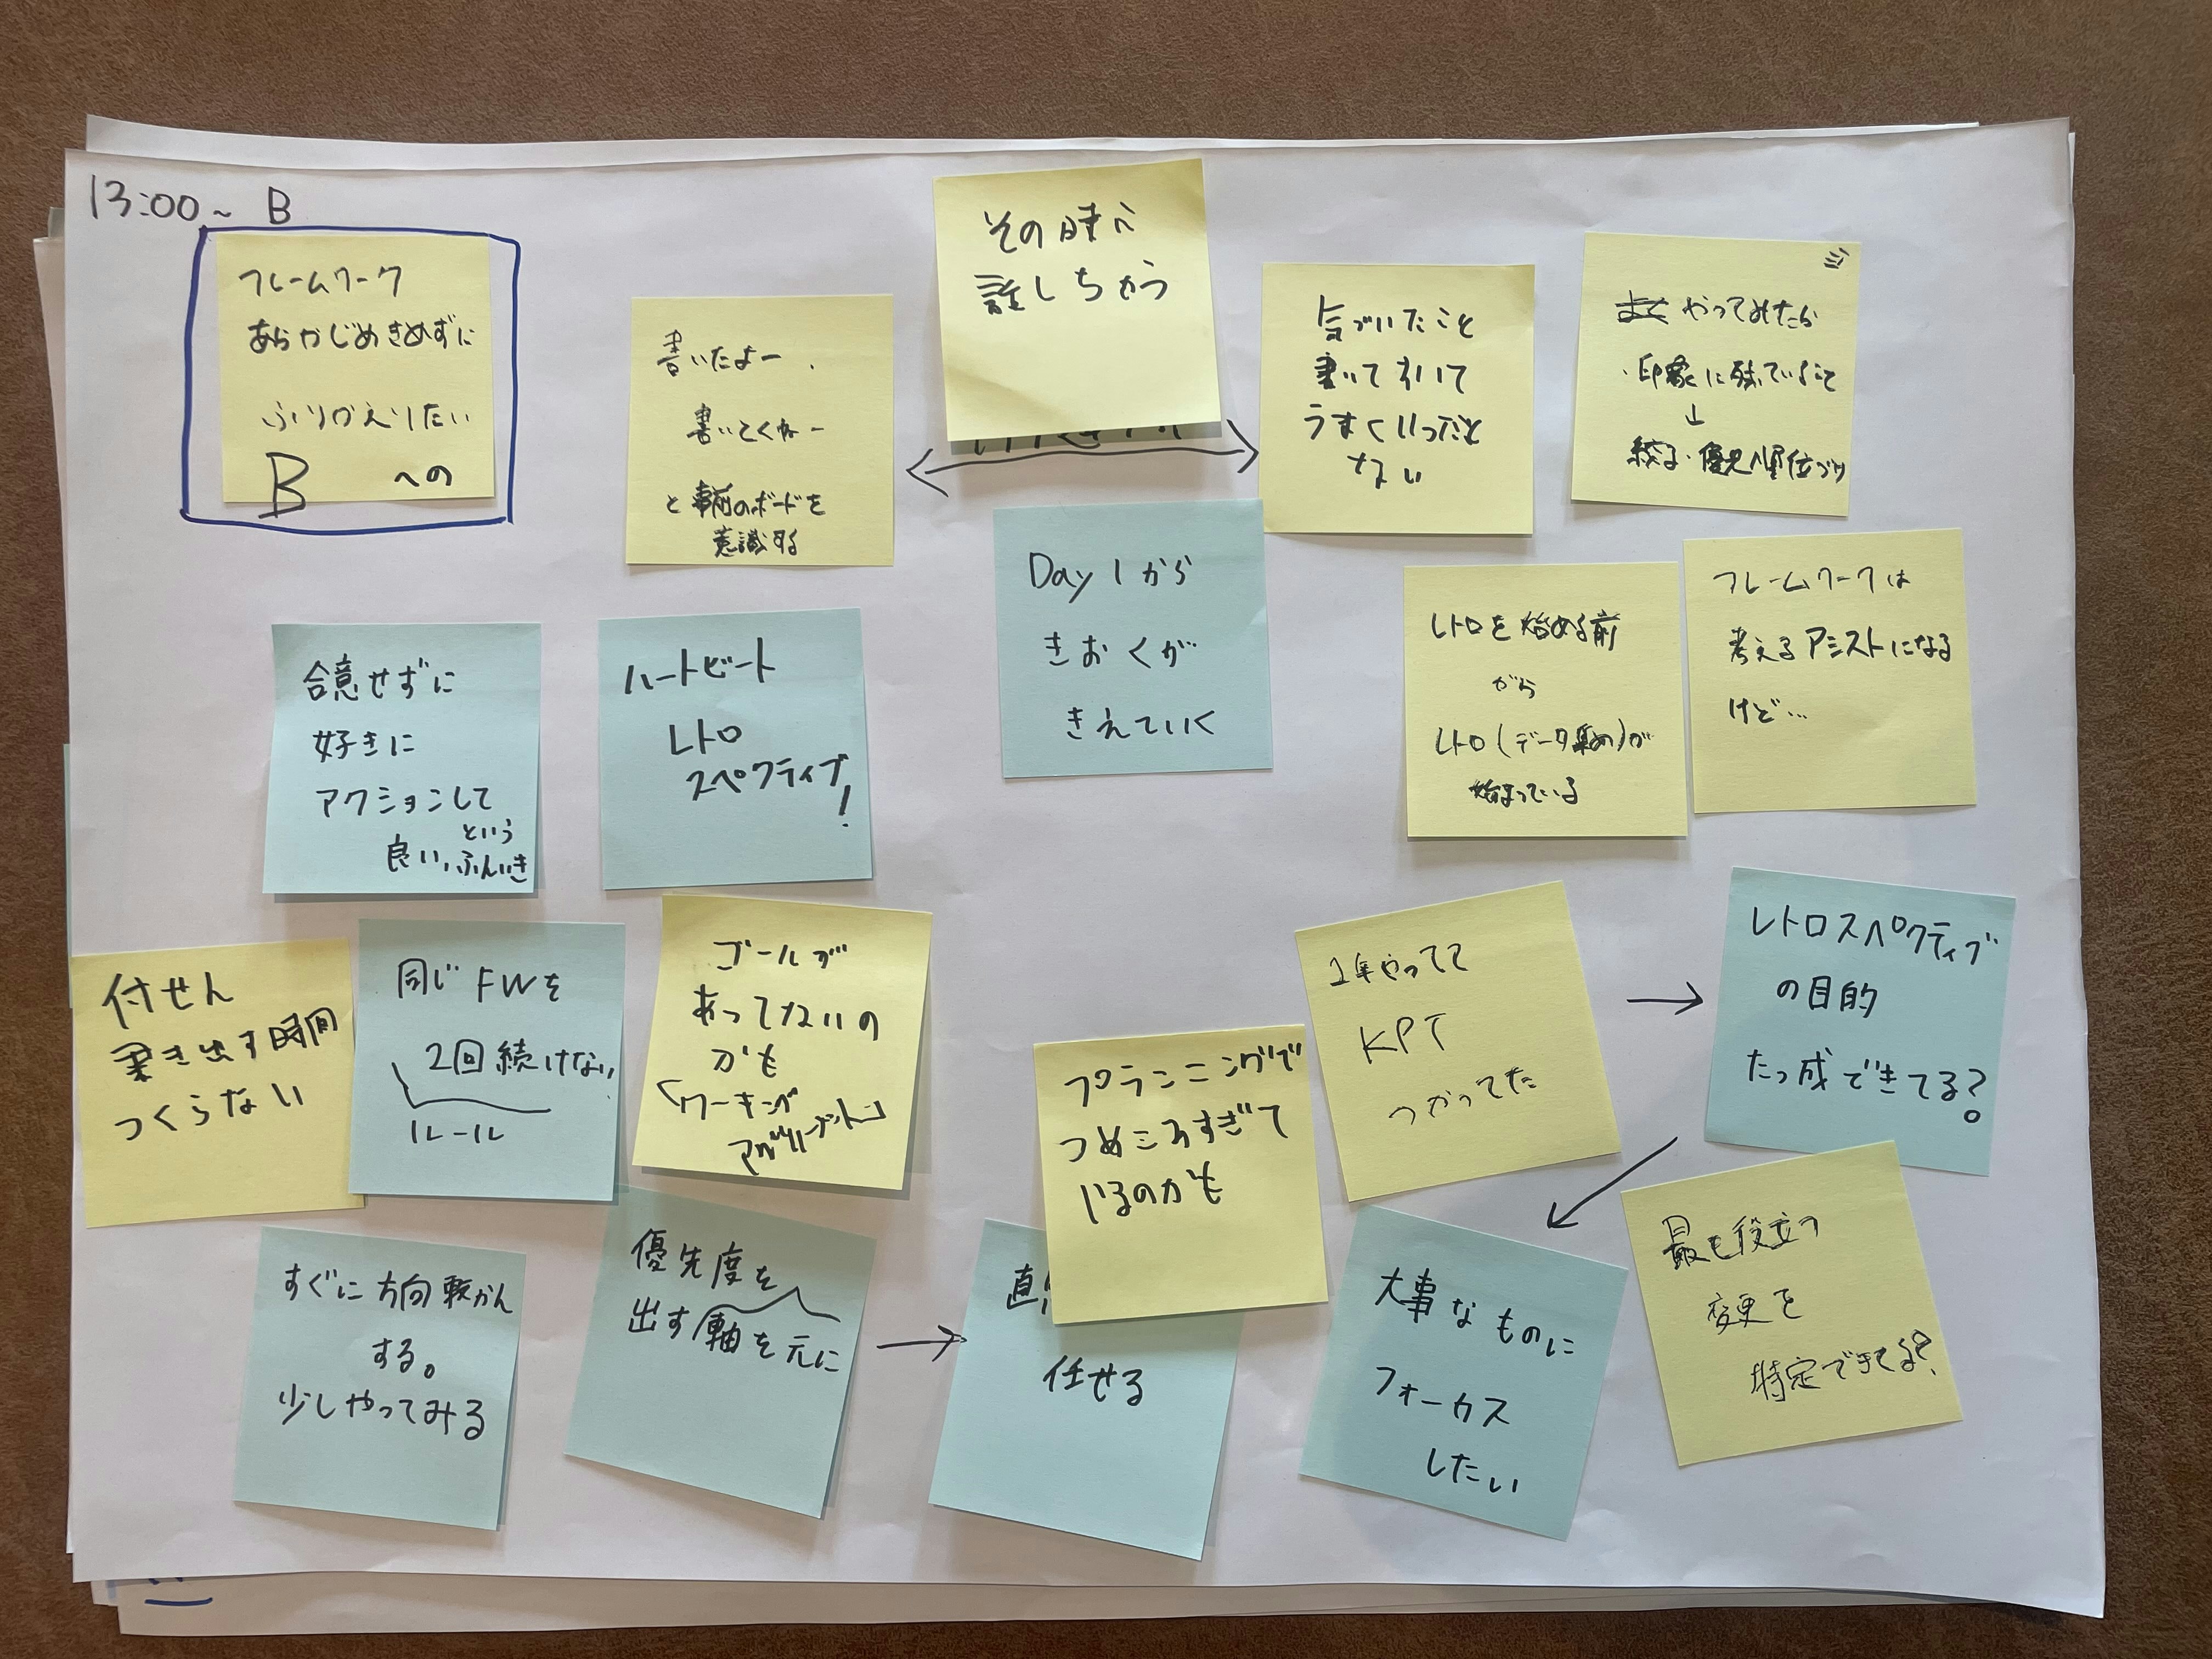 13:00~ B
フレームワーク
あらかじめきめずに
ふりかえりたい
B への
書いたよー
書いてくねー
と事前のボードを
意識する
その時に
話しちゃう
気づいたこと
書いておいて
うまくいったこと
ない
やってみたら
・印象に残っていること
↓
絞る・優先順位づけ
Day 1から
きおくが
きえていく
レトロを始める前
から
レトロ(データ集め)が
始まっている
フレームワークは
考えるアシストになる
けど…
合意せずに
好きに
アクションして
良い,という
ふんいき
ハートビート
レトロ
スペクティブ!
付せん
書き出す時間
つくらない
同じFWを
2回続けない
ルール
ゴールが
あってないの
かも
「ワーキング
アグリーメント」
プランニングで
つめこみすぎて
いるのかも
1年やってて
KPT
つかってた
レトロスペクティブ
の目的
たっ成できてる?
すぐに方向転かん
する。
少しやってみる
優先度を
出す軸を元に
直
任せる
大事なものに
フォーカス
したい
最も役立つ
変更を
特定できてる?